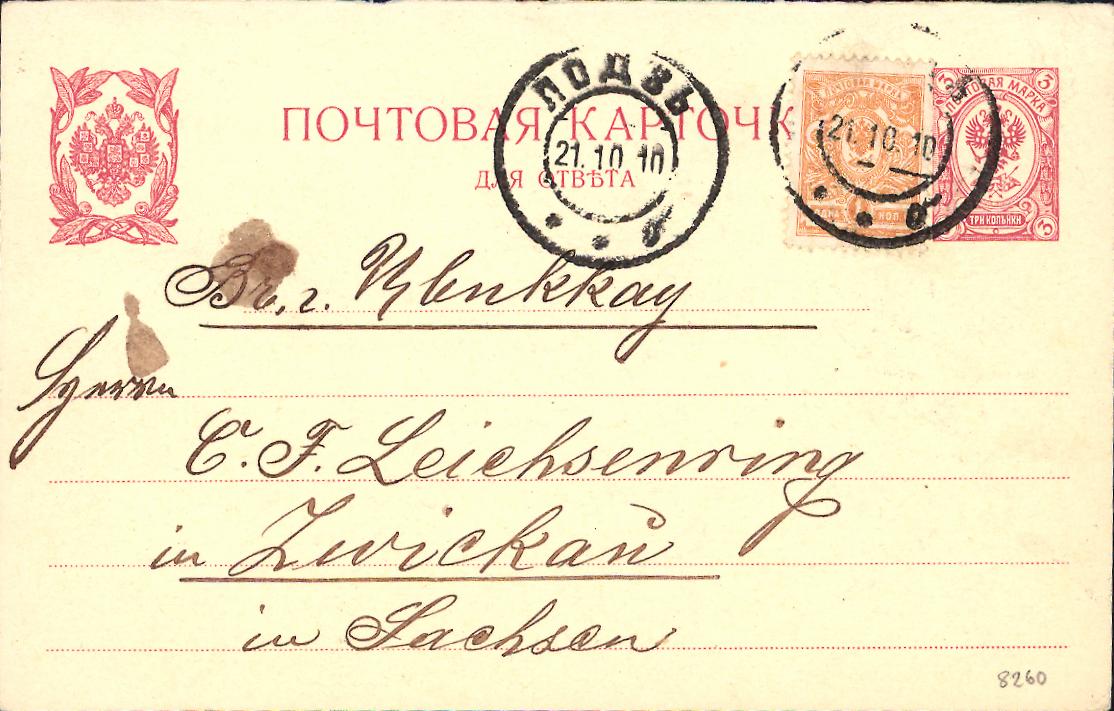 ПОЧТОВАЯ КАРТОЧК
ДЛЯ ОТВѢТА
ЛОДЗЬ
21.10.10
б
ПОЧТОВАЯ МАРКА
КОП.
21.10.10
б
3
3
ПОЧТОВАЯ МАРКА
ТРИ КОПѢЙКИ
3
Herrn
C. F. Leichsenring
in Zwickau
in Sachsen
8260